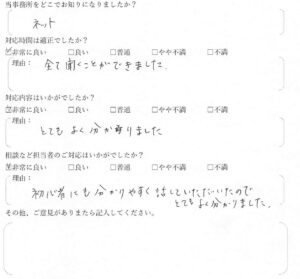 当事務所をどこでお知りになりましたか？
ネット
対応時間は適正でしたか？
☑非常に良い □良い □普通 □やや不満 □不満
理由：
全て聞くことができました。
対応内容はいかがでしたか？
☑非常に良い □良い □普通 □やや不満 □不満
理由：
とてもよく分かりました
相談など担当者のご対応はいかがでしたか？
☑非常に良い □良い □普通 □やや不満 □不満
理由：
初心者にも分かりやすく話していただいたので
とてもよく分かりました。
その他、ご意見がありまたら記入してください。